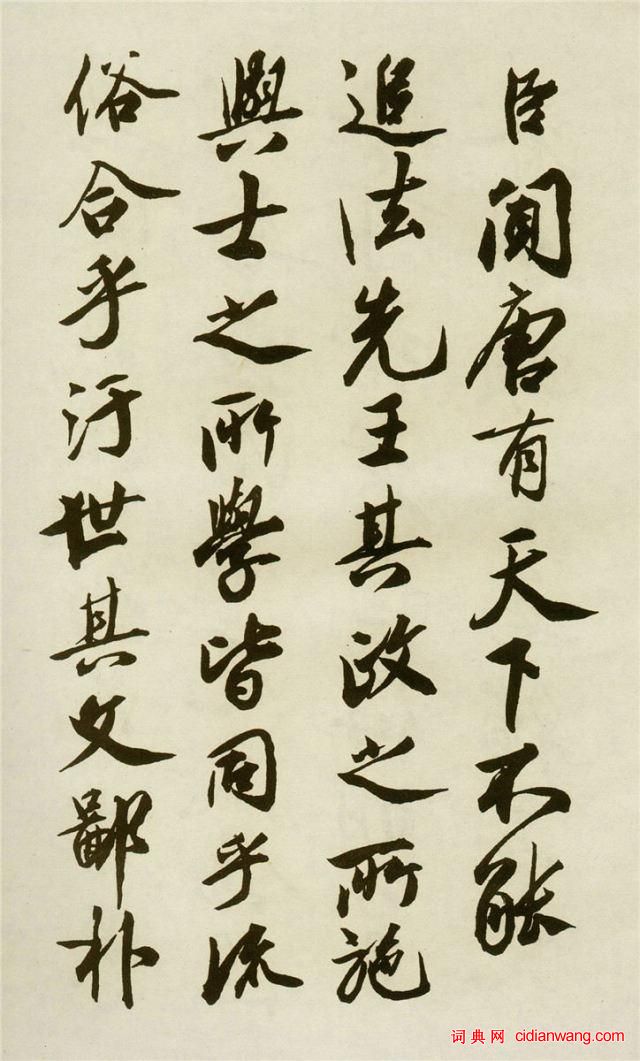 臣聞唐有天下不能
追法先王其政之所施
與士之所學皆同乎流
俗合乎汙世其文鄙朴
词典网 cidianwang.com